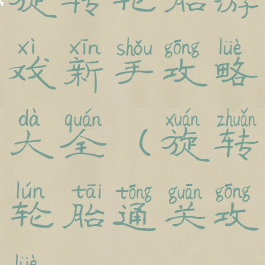 旋转轮胎游
xì xīn shǒu gōng lüè
戏新手攻略
dà quán xuán zhuǎn
大全（旋转
lún tāi tōng guān gōng
轮胎通关攻
lüè